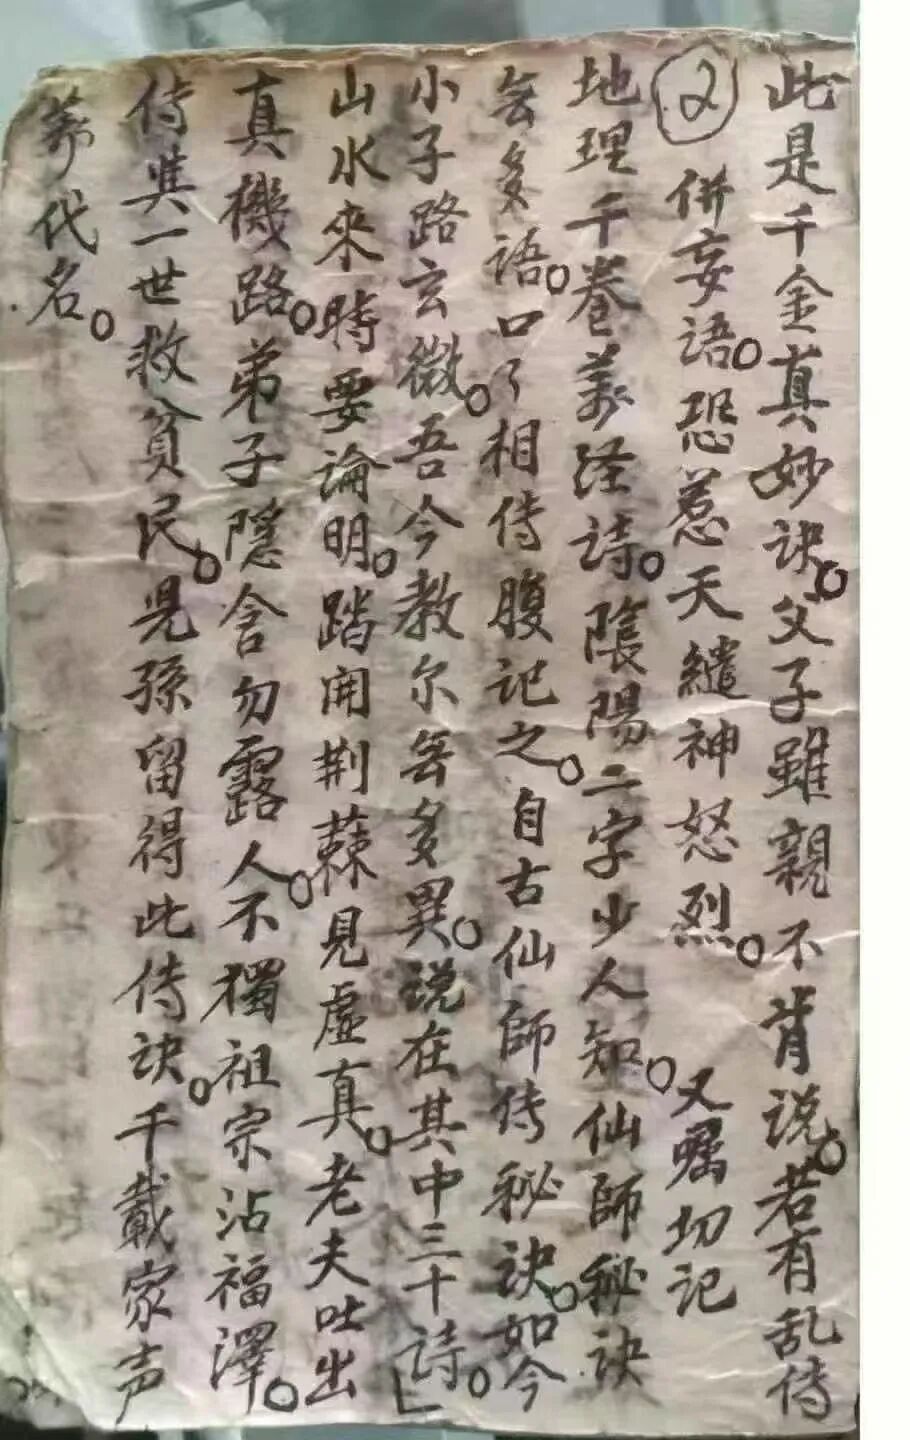 此是千金真妙诀。父子雖親不肯说。若有乱傳
② 併妄语。恐惹天繾神怒烈。 又嘱切记
地理千卷萬经诗。陰陽二字少人知。仙師秘诀
無多语。口了相傳腹记之。自古仙師傳秘诀。如今
小子路玄微。吾今教尔無多異。说在其中三十诗。
山水來時要論明。踏開荆蔴見虚真。老夫吐出
真機路。弟子隱含勿露人。不獨祖宗沾福澤。
傳其一世救貧民。児孫留得此傳诀。千載家声
萬代名。